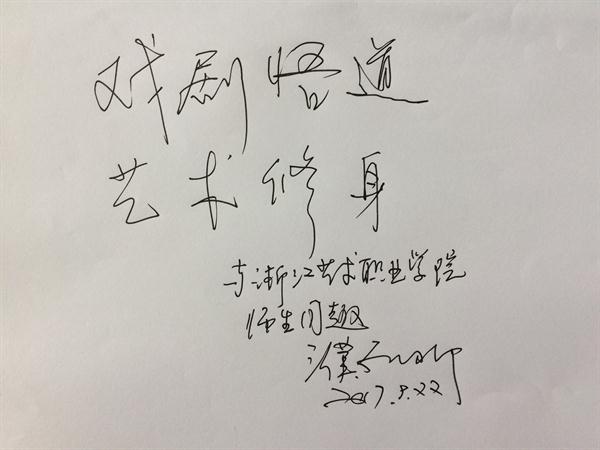 戏剧悟道
艺术修身
与浙江艺术职业学院
师生同趣
濮存昕
2017.9.22